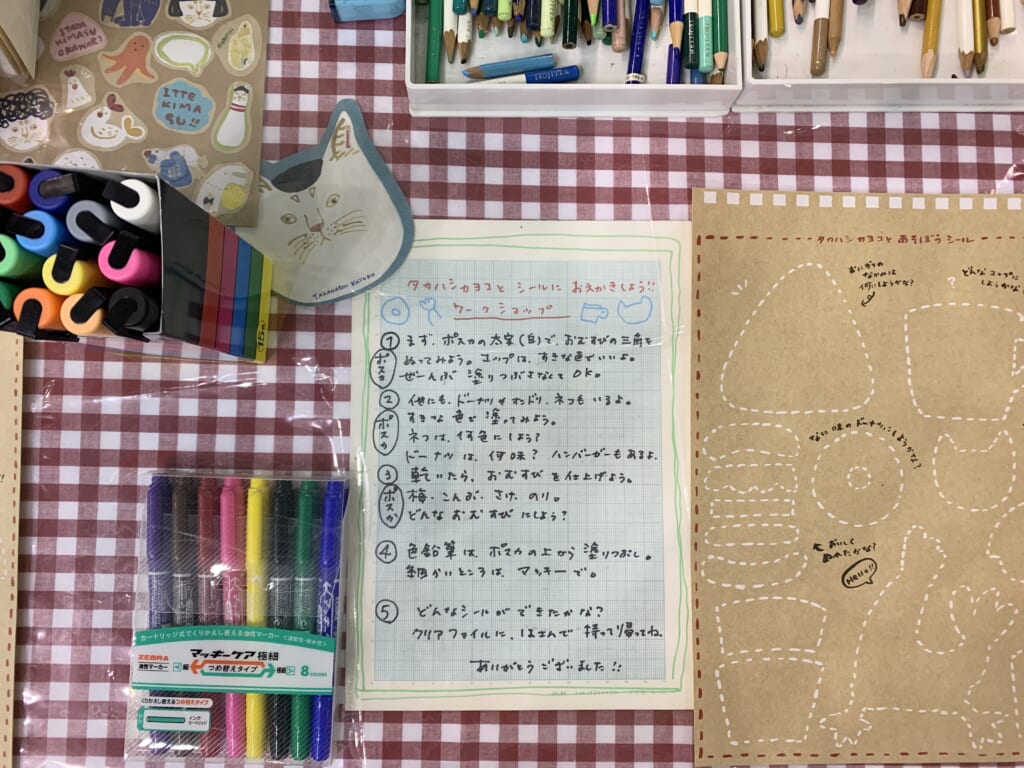 ITADA
KIMASU
OKAWARI?
ITTE
KIMA
SU!!
TAKAHASHI KAYOKO
15色
タカハシカヨコと シールに おえかきしよう!!
ワークショップ
① まず、ポスカの太字(白)で、おむすびの三角を
ぬってみよう。コップは、すきな色でいいよ。
ぜーんぶ 塗りつぶさなくて OK。
ポスカ
② 他にも、ドーナツやオンドリ、ネコもいるよ。
すきな色で塗ってみよう。
ネコは、何色にしよう?
ドーナツは、何味? ハンバーガーもあるよ。
ポスカ
③ 乾いたら、おむすびを仕上げよう。
梅、こんぶ、さけ、のり。
どんなおむすびにしよう?
ポスカ
④ 色鉛筆は、ポスカの上から塗りつぶし。
細かいところは、マッキーで。
⑤ どんなシールができたかな?
クリアファイルに、はさんで持って帰ってね。
ありがとうございました!!
タカハシカヨコと あそぼうシール
おにぎりの
なかみは
何にしようかな?
どんなコップに
しようかな
なに味のドーナツにしようかな?
おいしく
ぬれたかな?
Hello!!
カートリッジ式でくりかえし使える油性マーカー
ZEBRA
マッキーケア 極細
油性マーカー
細
つめ替えタイプ
極細
8
COLORS
くりかえし使えるつめ替えタイプ
インク
カートリッジ